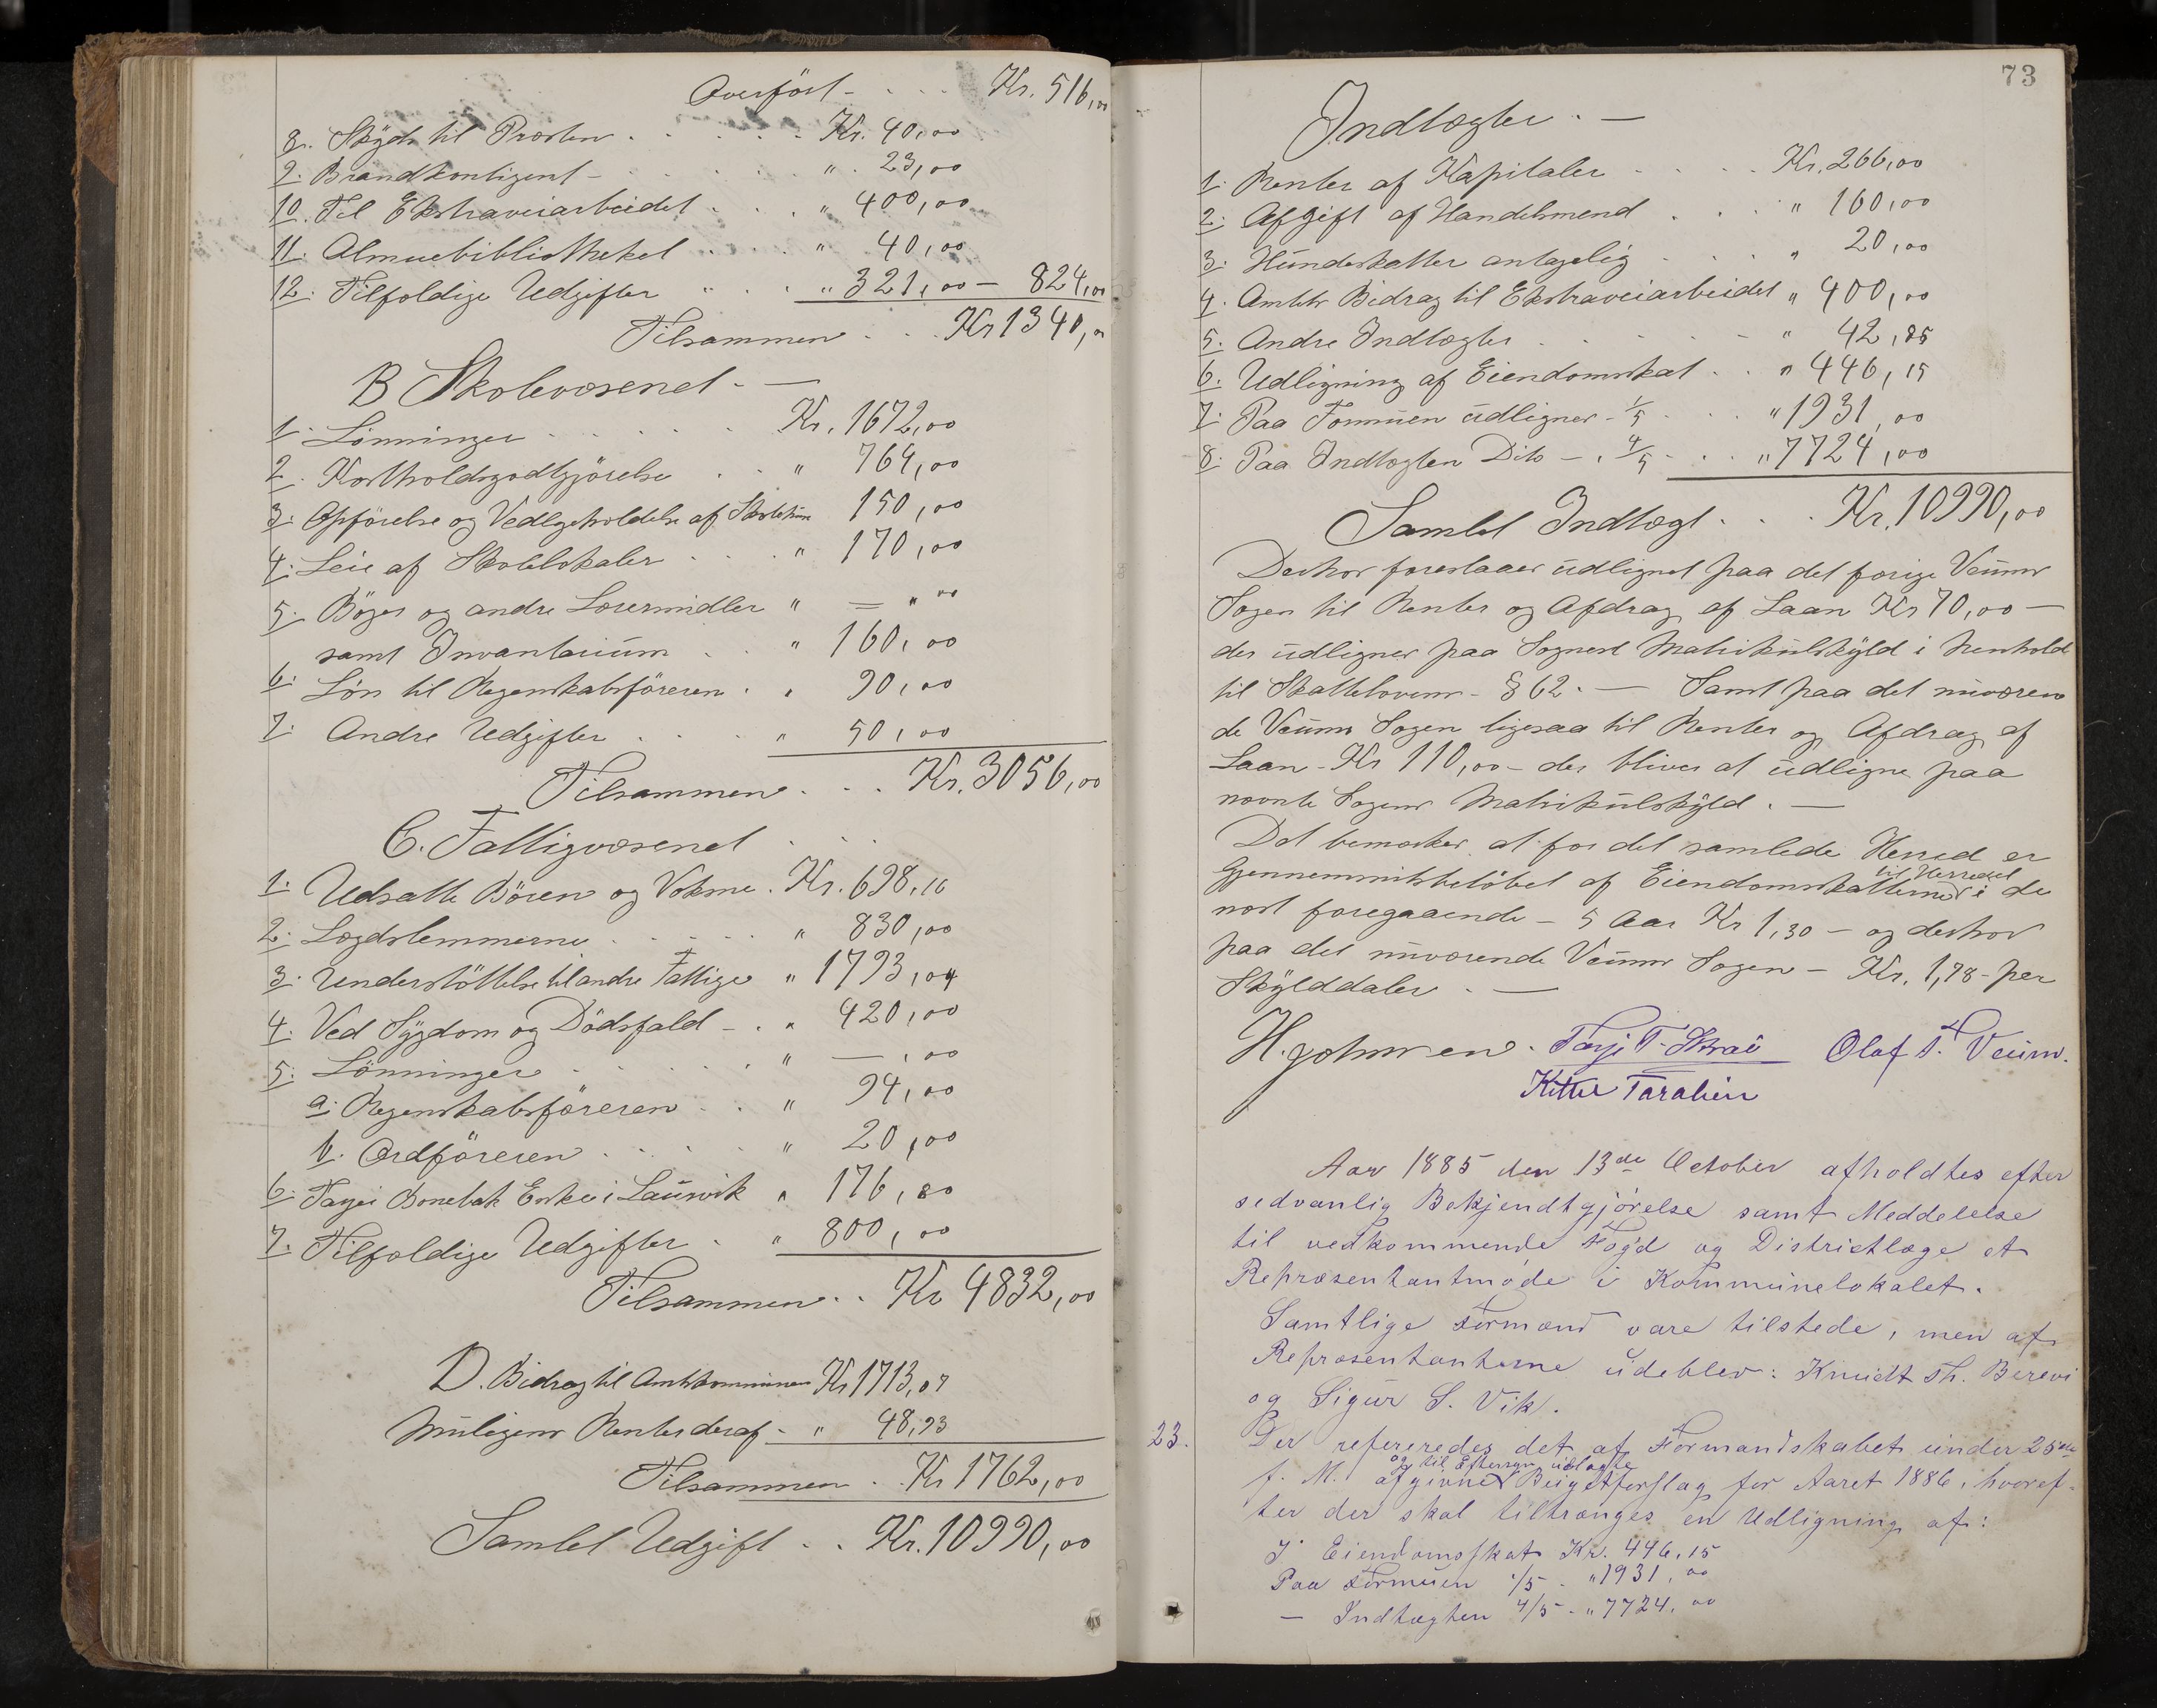 Overført - . . . Kr. 516,00
8. Skyds til Præsten . . . . . Kr. 40,00
9. Brandkontigent - . . . . " 23,00
10. Til Ekstraveiarbeidet . . . " 400,00
11. Almuebibliotheket . . . " 40,00
12. Tilfældige Udgifter " . . " 321,00 - 824,00
Tilsammen . . . Kr 1340,00
B Skolevæsenet. —
1. Lønninger . . . . . . Kr. 1672,00
2. Kostholdsgodtgjørelse . . " 764,00
3. Opførelse og Vedligeholdelse af Skolehuse 150,00
4. Leie af Skolelokaler . . . " 170,00
5. Bøger og andre Læremidler " = " 00
samt Inventarium . . " 160,00
6. Løn til Regnskabsføreren . " 90,00
7. Andre Udgifter . . . " 50,00
Tilsammen . . . Kr. 3056,00
C. Fattigvæsenet . . .
1. Udsatte Børen og Voksne . Kr. 698,16
2. Lægdslemmerne . . . . . " 830,00
3. Understøttelse til andre Fattige " 1793,04
4. Ved Sygdom og Dødsfald - . " 420,00
5. Lønninger . . . . . . " — ,00
a. Regnskabsføreren . . " 94,00
b. Ordføreren . . . . . " 20,00
6. Tarjei Bonebak Enke i Laurvik " 176,80
7. Tilfældige Udgifter . " 800,00
Tilsammen . . Kr 4832,00
D. Bidrag til Amtskommunen Kr 1713,07
Muligens Renter deraf - " 48,93
Tilsammen . . Kr 1762,00
Samlet Udgift . . Kr. 10990,00
73
Indtægter . —
1. Renter af Kapitaler . . . . Kr. 266,00
2. Afgift af Handelsmend . . . " 160,00
3. Hundeskatter antagelig . . . " 20,00
4. Amtets Bidrag til Ekstraveiarbeidet " 400,00
5. Andre Indtægter . . . . . " 42,85
6. Udligning af Eiendomsskat . . " 446,15
7. Paa Formuen udlignes - 1/5 . . . " 1931,00
8. Paa Indtægten Dito - . 4/5 - . . " 7724,00
Samlet Indtægt . . . Kr. 10990,00
Deshor foreslaaes udlignet paa det forige Veums
Sogen til Renter og Afdrag af Laan Kr 70,00 —
der udlignes paa Sognets Matrikulskyld i Henhold
til Skattelovens - § 62. — Samt paa det nuværen
de Veums Sogen ligesaa til Renter og Afdrag af
Laan - Kr 110,00 - der bliver at udligne paa
nævnte Sogens Matrikulskyld . —
Det bemærkes at for det samlede Herred er
Gjennemsnitsbeløbet af Eiendomsskatterne til Herredet i de
næst foregaaende - 5 Aar Kr 1,30 - og deshor
paa det nuværende Veums Sogen - Kr. 1,78 - per
Skylddaler . —
H. Johnsen. Tarje T. Skraë Olaf T. Veum.
Kittil Taraldlien
Aar 1885 den 13de October afholdtes efter
sedvanlig Bekjendtgjørelse samt Meddelelse
til vedkommende Fogd og Districtlæge et
Repræsentantmøde i Kommunelokalet.
Samtlige Formænd vare tilstede, men af
Repræsentanterne udeblev: Knudt Th. Berevi
og Sigur S. Vik.
23. Der refereredes det af Formandskabet under 25de
f. M. afgivne og til Eftersyn udlagte Budgetforslag for Aaret 1886, hvoref-
ter der skal tiltrænges en Udligning af:
I Eiendomsskat Kr. 446,15
Paa Formuen 1/5 . " 1931,00
— Indtægten 4/5 - " 7724,00